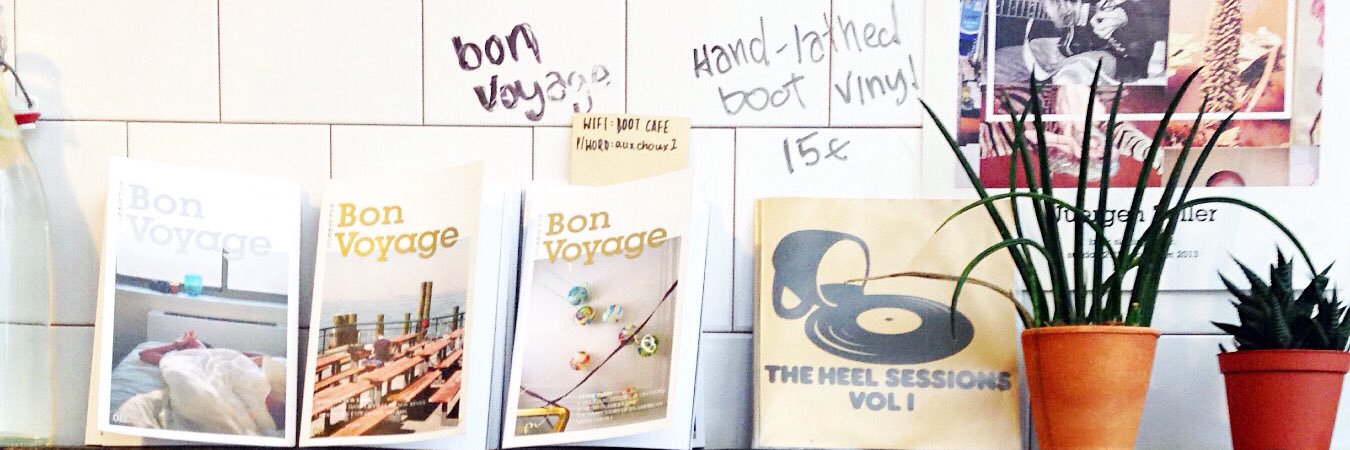 bon
voyage
Hand-lathed
boot vinyl
15€
WIFI: BOOT CAFE
P/WORD: auxchoux1
Bon
Voyage
Bon
Voyage
Bon
Voyage
THE HEEL SESSIONS
VOL 1
Juergen